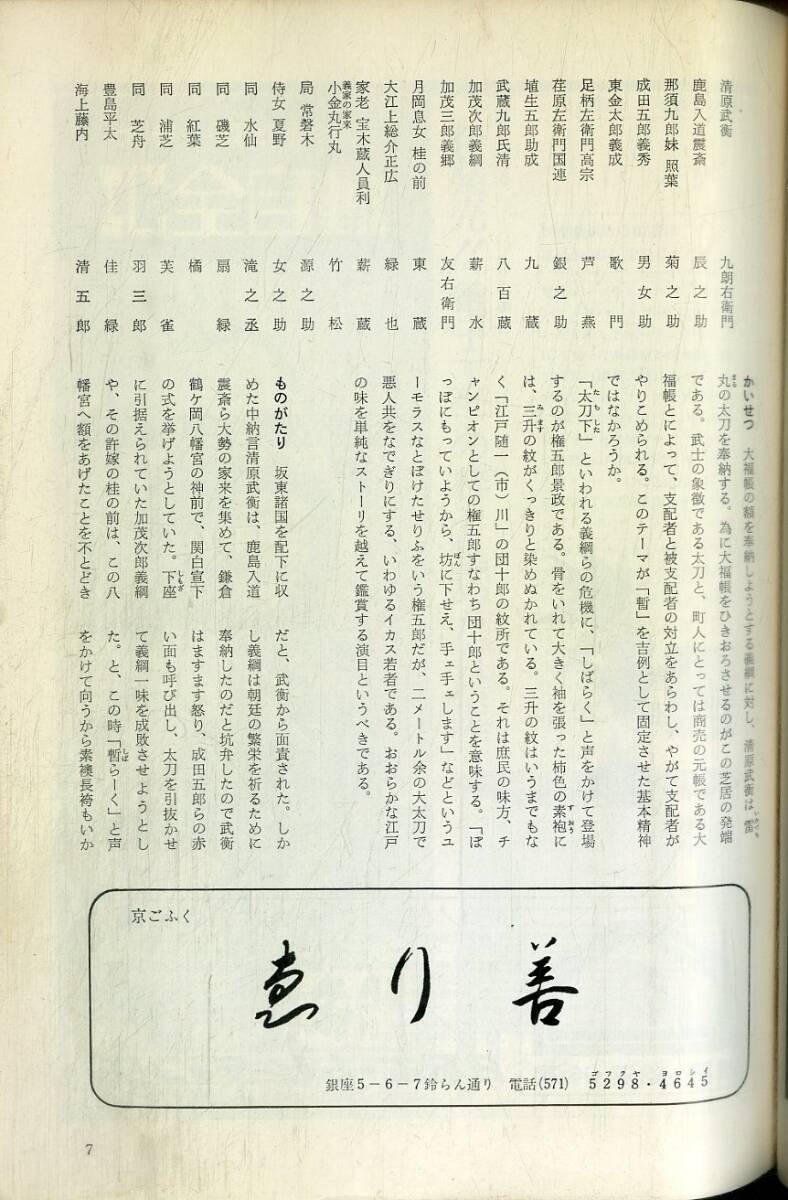 清原武衡　九朗右衛門
鹿島入道震斎　辰之助
那須九郎妹 照葉　菊之助
成田五郎義秀　男女助
東金太郎義成　歌門
足柄左衛門高宗　芦燕
荏原左衛門国連　銀之助
埴生五郎助成　九蔵
武蔵九郎氏清　八百蔵
加茂次郎義綱　薪水
加茂三郎義郷　友右衛門
月岡息女 桂の前　東蔵
大江上総介正広　緑也
家老 宝木蔵人員利　薪蔵
義家の家来 小金丸行丸　竹松
局 常磐木　源之助
侍女 夏野　女之助
同 水仙　滝之丞
同 磯芝　扇緑
同 紅葉　橘
同 浦芝　芙雀
同 芝舟　羽三郎
豊島平太　佳緑
海上藤内　清五郎
かいせつ　大福帳の額を奉納しようとする義綱に対し、清原武衡は雷
丸の太刀を奉納する。為に大福帳をひきおろさせるのがこの芝居の発端
である。武士の象徴である太刀と、町人にとっては商売の元帳である大
福帳とによって、支配者と被支配者の対立をあらわし、やがて支配者が
やりこめられる。このテーマが「暫」を吉例として固定させた基本精神
ではなかろうか。
「太刀下」といわれる義綱らの危機に、「しばらく」と声をかけて登場
するのが権五郎景政である。骨をいれて大きく袖を張った柿色の素袍に
は、三升の紋がくっきりと染めぬかれている。三升の紋はいうまでもな
く「江戸随一（市）川」の団十郎の紋所である。それは庶民の味方、チ
ャンピオンとしての権五郎すなわち団十郎ということを意味する。「ぽ
っぽにもっていようから、坊に下せえ、手ェ手ェします」などというユ
ーモラスなとぼけたせりふをいう権五郎だが、二メートル余の大太刀で
悪人共をなでぎりにする、いわゆるイカス若者である。おおらかな江戸
の味を単純なストーリを越えて鑑賞する演目というべきである。
ものがたり　坂東諸国を配下に収
めた中納言清原武衡は、鹿島入道
震斎ら大勢の家来を集めて、鎌倉
鶴ケ岡八幡宮の神前で、関白宣下
の式を挙げようとしていた。下座
に引据えられていた加茂次郎義綱
や、その許嫁の桂の前は、この八
幡宮へ額をあげたことを不とどき
だと、武衡から面責された。しか
し義綱は朝廷の繁栄を祈るために
奉納したのだと坑弁したので武衡
はますます怒り、成田五郎らの赤
い面も呼び出し、太刀を引抜かせ
て義綱一味を成敗させようとし
た。と、この時「暫らーく」と声
をかけて向うから素襖長袴もいか
京ごふく
ゑり善
銀座5－6－7鈴らん通り　電話(571) 5298・4645
ゴフクヤ　ヨロシイ
7